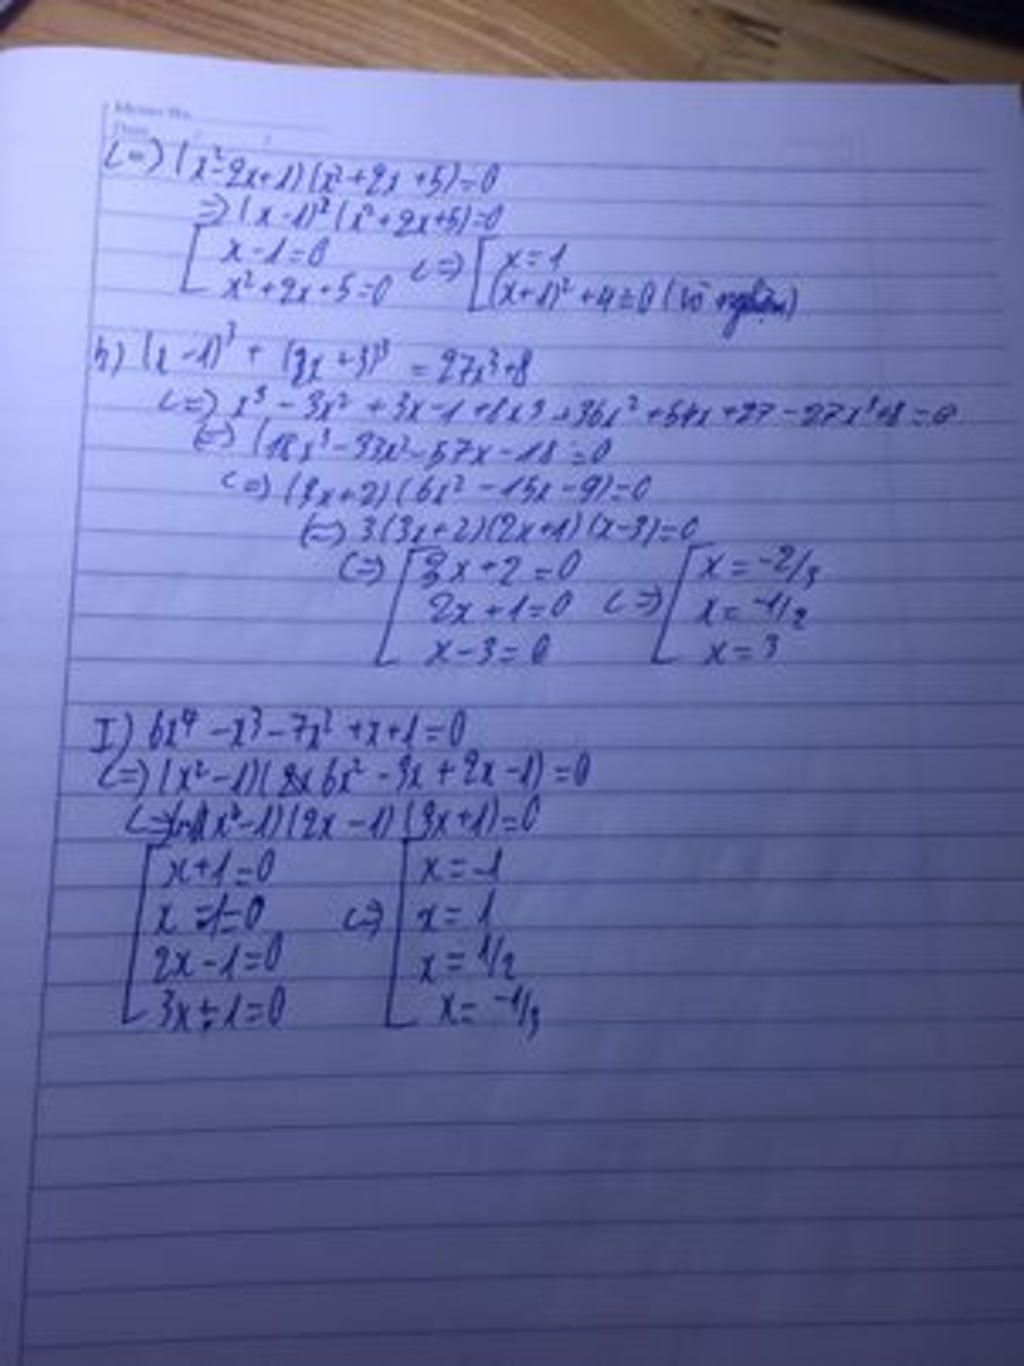 Memo No.
Date
<=> (x²-2x+1)(x²+2x+5)=0
=> (x-1)²(x²+2x+5)=0
[ x-1=0 <=> [ x=1
x²+2x+5=0 (x+1)²+4=0 (vô nghiệm)
h) (x-1)³ + (2x+3)³ = 27x³+8
<=> x³-3x²+3x-1+8x3+36x²+54x+27-27x³+8=0
<=> (18x³-33x²-57x-18=0
<=> (3x+2)(6x²-15x-9)=0
<=> 3(3x+2)(2x+1)(x-3)=0
<=> [ 3x+2=0 <=> [ x=-2/3
2x+1=0 x=-1/2
x-3=0 x=3
I) 6x⁴-x³-7x²+x+1=0
<=> (x²-1)(6x²-3x+2x-1)=0
<=> (x²-1)(2x-1)(3x+1)=0
[ x+1=0 <=> [ x=-1
x-1=0 x=1
2x-1=0 x=1/2
3x+1=0 x=-1/3